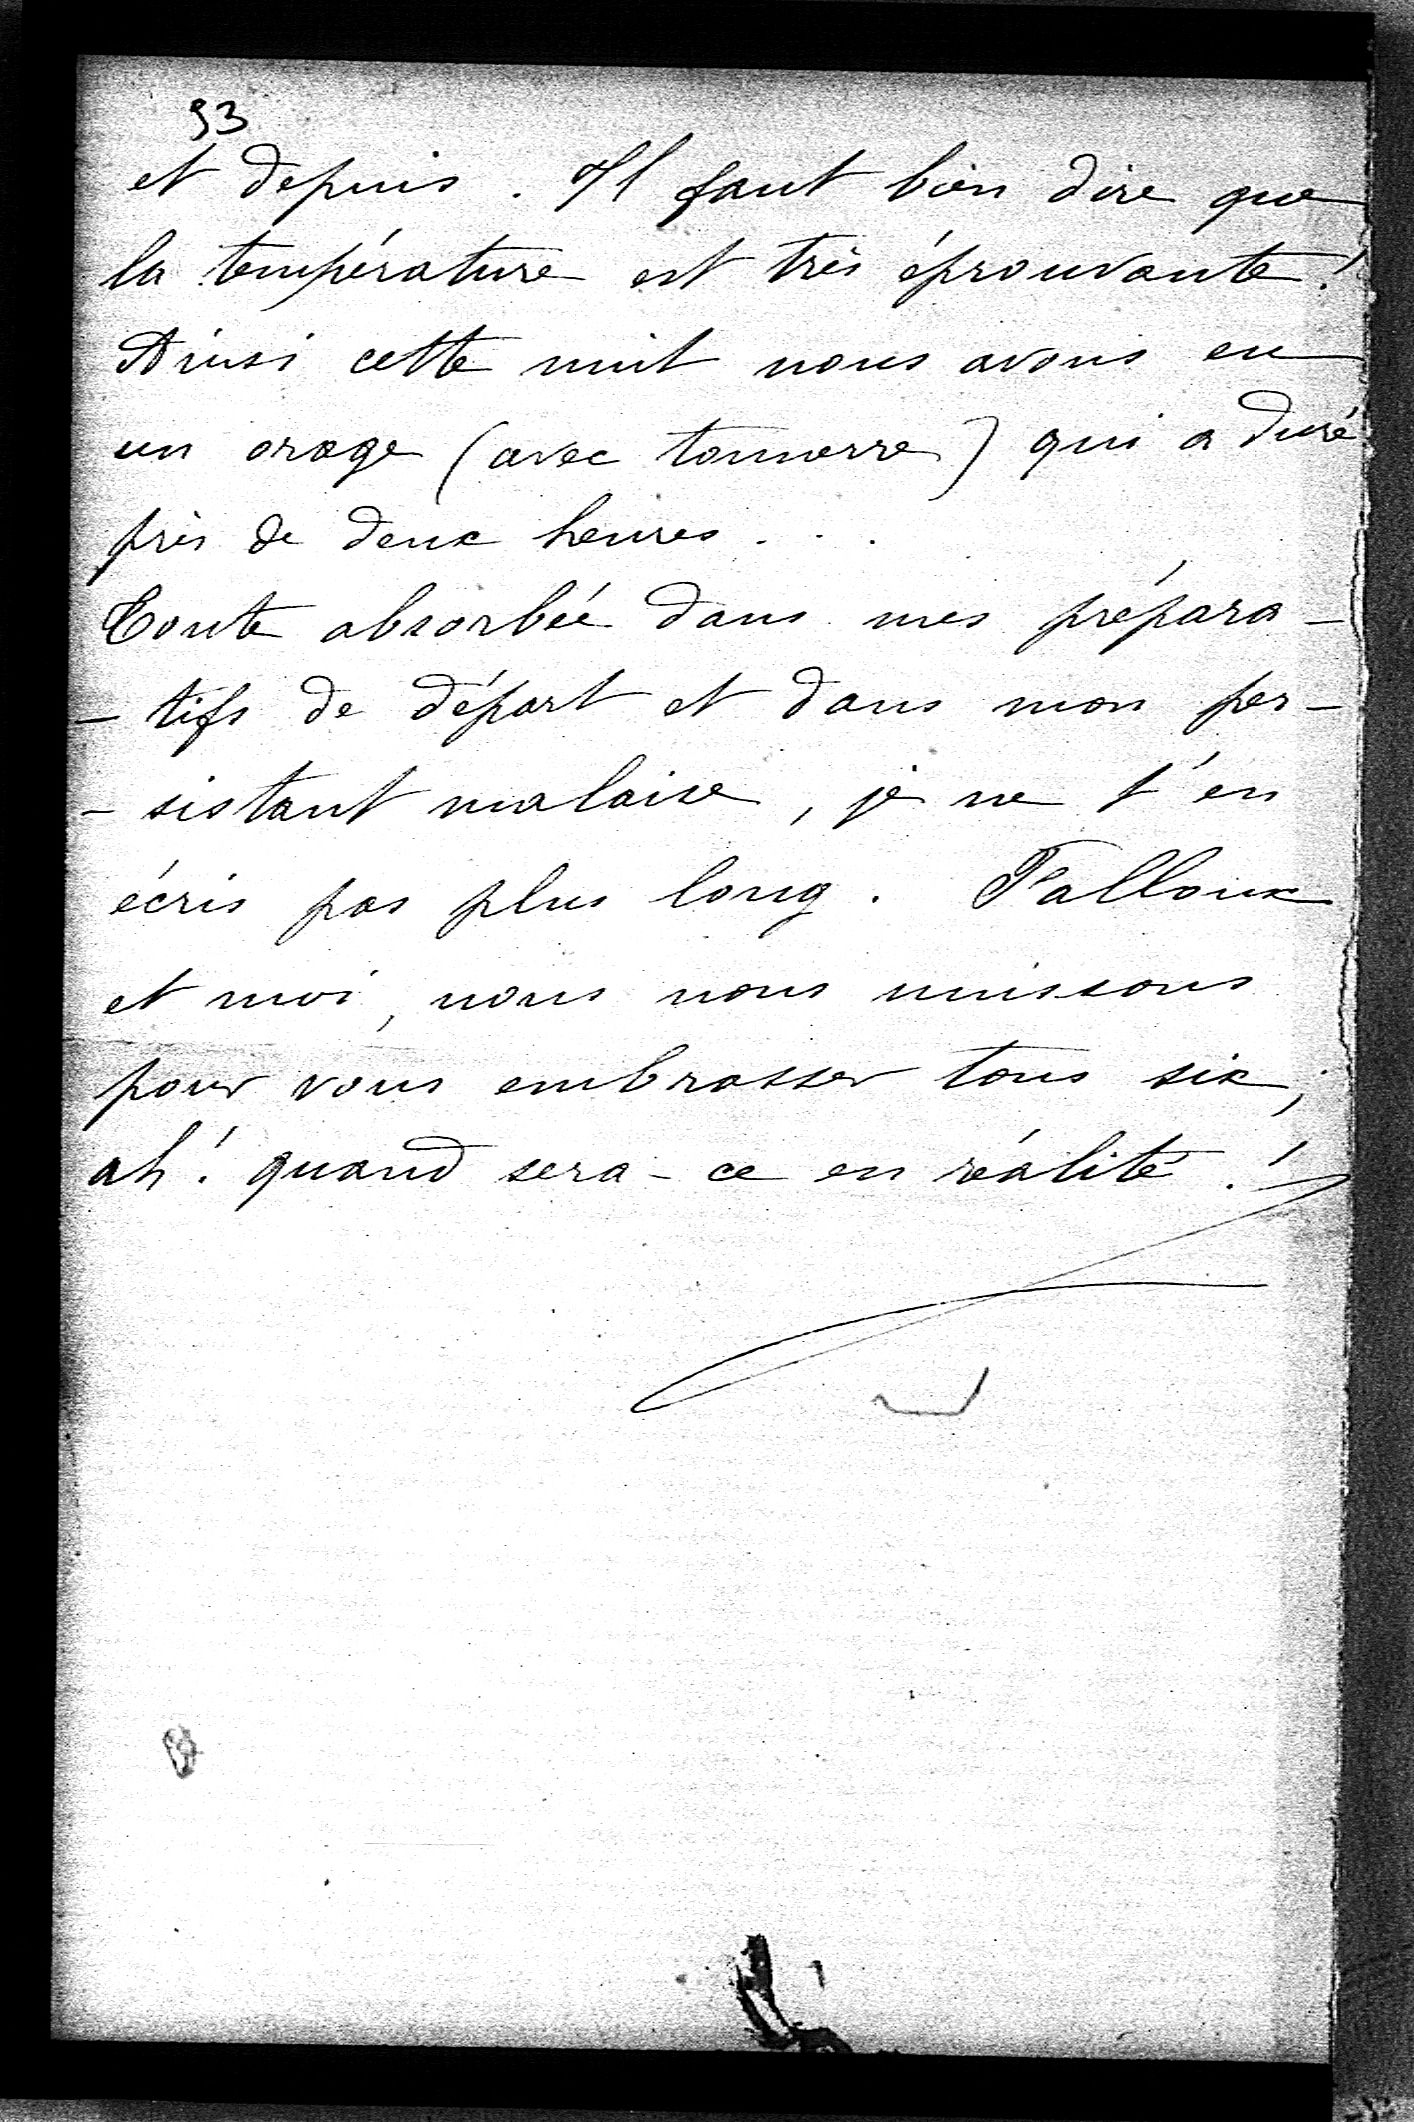 93
et depuis. Il faut bien dire que
la température est très éprouvante!
Ainsi cette nuit nous avons eu
un orage (avec tonnerre) qui a duré
près de deux heures...
Toute absorbée dans mes prépara-
-tifs de départ et dans mon per-
-sistant malaise, je ne t'en
écris pas plus long. Falloux
et moi, nous nous unissons
pour vous embrasser tous six;
ah! quand sera-ce en réalité!